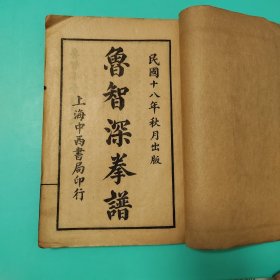 民國十八年秋月出版
魯智深拳譜
上海中西書局印行